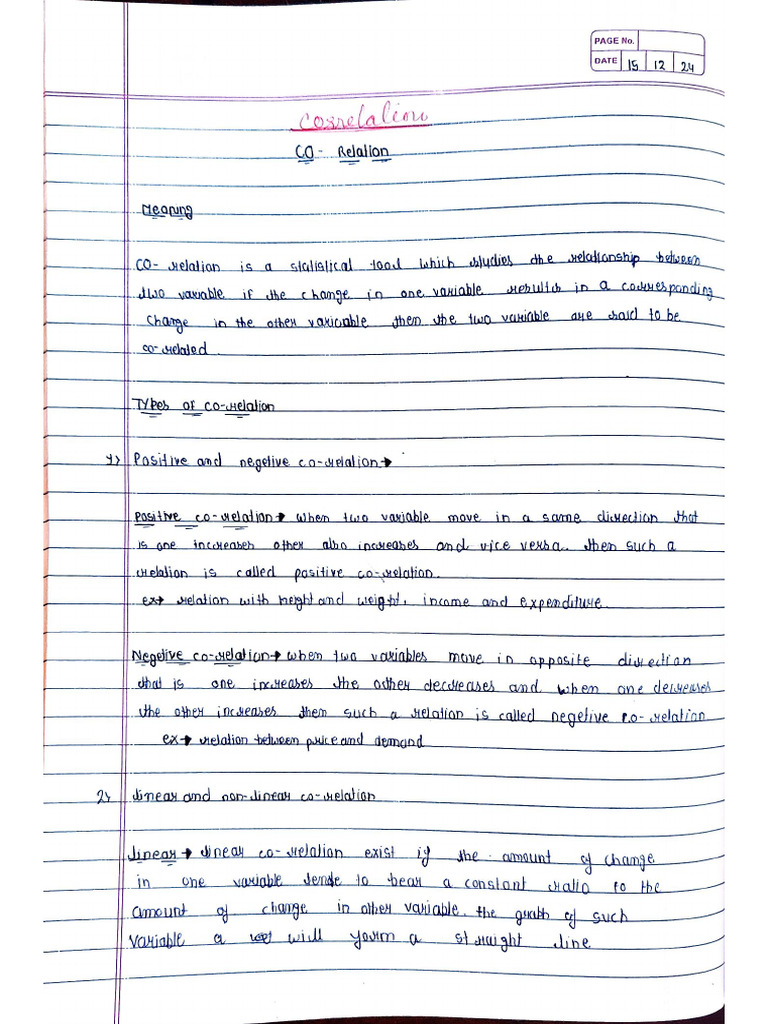 PAGE No.
DATE 15 12 24
Correlation
CO - Relation
Meaning
CO- relation is a statistical tool which studies the relationship between
two variable if the change in one variable results in a corresponding
change in the other variable then the two variable are said to be
co-related.
Types of co-relation
1) Positive and negetive co-relation→
Positive co-relation→ when two variable move in a same direction that
is one increases other also increases and vice versa. then such a
relation is called positive co-relation.
ex→ relation with height and weight, income and expenditure.
Negetive co-relation→ when two variables move in opposite direction
that is one increases the other decreases and when one decreases
the other increases then such a relation is called negetive co-relation
ex→ relation between price and demand
2) linear and non-linear co-relation
linear → linear co-relation exist if the amount of change
in one variable tends to bear a constant ratio to the
amount of change in other variable. the graph of such
variable a will form a straight line